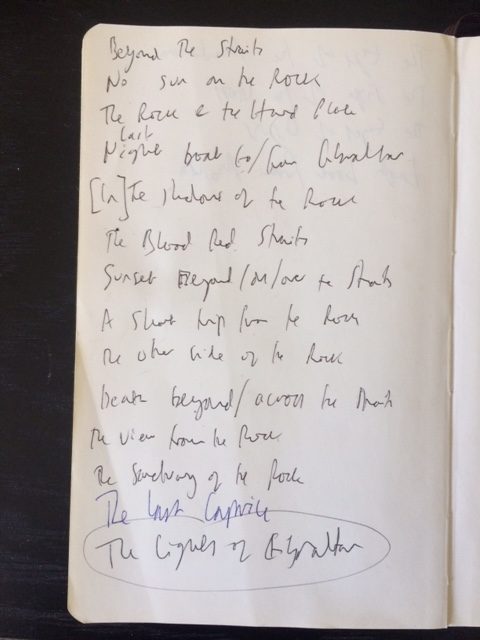 Beyond The Straits
No sun on the Rock
The Rock & the Hard Place
Last
Night boat to/from Gibraltar
[In] The shadows of the Rock
The Blood Red Straits
Sunset Beyond/on/over the Straits
A Short trip from the Rock
The other side of the Rock
Death beyond/across the Straits
The view from the Rock
The Sanctuary of the Rock
The Last
The Lights of Gibraltar